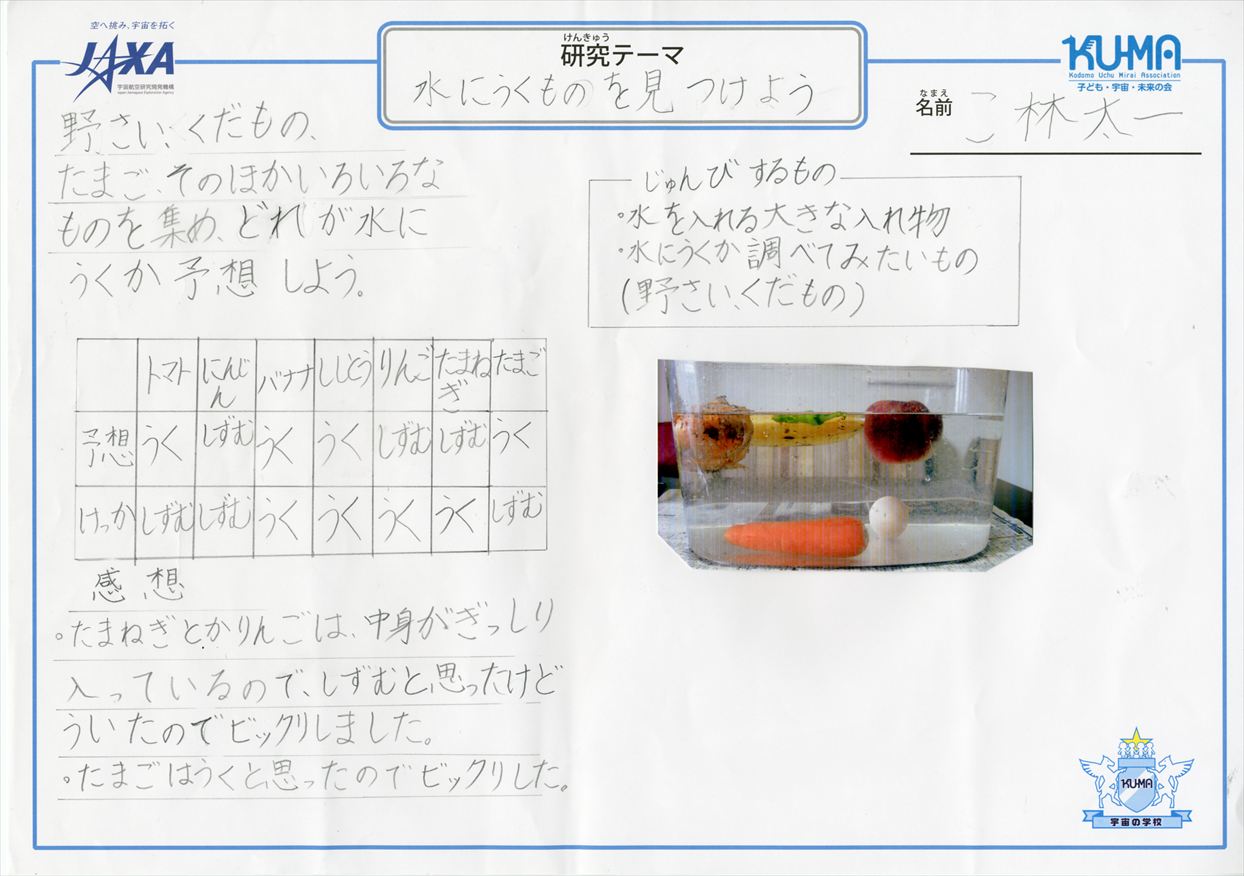 空へ挑み、宇宙を拓く
JAXA
宇宙航空研究開発機構
Japan Aerospace Exploration Agency
けんきゅう
研究テーマ
水にうくものを見つけよう
KU-MA
Kodomo Uchu Mirai Association
子ども・宇宙・未来の会
なまえ
名前 こ林太一
野さい、くだもの、
たまご、そのほかいろいろな
ものを集め、どれが水に
うくか予想しよう。
じゅんびするもの
・水を入れる大きな入れ物
・水にうくか調べてみたいもの
(野さい、くだもの)
トマト にんじん バナナ ししとう りんご たまねぎ たまご
予想 うく しずむ うく うく しずむ しずむ うく
けっか しずむ しずむ うく うく うく うく しずむ
感想
。たまねぎとかりんごは、中身がぎっしり
入っているので、しずむと思ったけど
ういたのでビックリしました。
。たまごはうくと思ったのでビックリした。
KU-MA
宇宙の学校